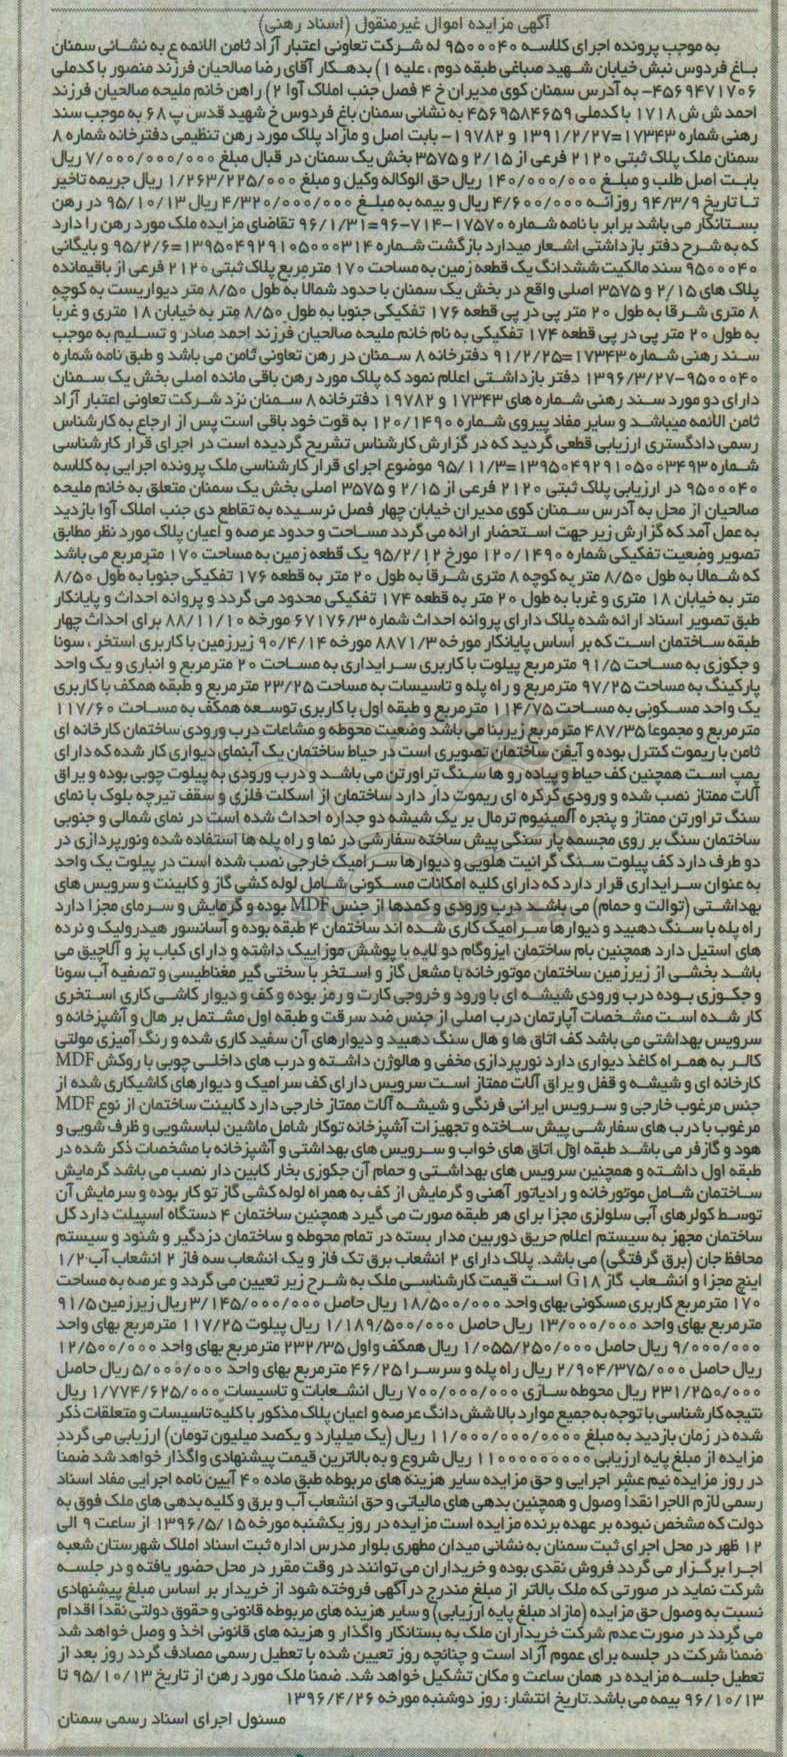 آگهی مزایده اموال غیرمنقول (اسناد رهنی)
به موجب پرونده اجرای کلاسه ۹۵۰۰۰۴۰ له شرکت تعاونی اعتبار آزاد ثامن الائمه ع به نشانی سمنان
باغ فردوس نبش خیابان شهید صباغی طبقه دوم ، علیه ۱) بدهکار آقای رضا صالحیان فرزند منصور با کدملی
۴۵۶۹۴۷۱۷۰۶- به آدرس سمنان کوی مدیران خ ۴ فصل جنب املاک آوا ۲) راهن خانم ملیحه صالحیان فرزند
احمد ش ش ۱۷۱۸ با کدملی ۴۵۶۹۵۸۴۶۵۹ به نشانی سمنان باغ فردوس خ شهید قدس پ ۶۸ به موجب سند
رهنی شماره ۱۷۳۴۳=۱۳۹۱/۲/۲۷ و ۱۹۷۸۲- بابت اصل و مازاد پلاک مورد رهن تنظیمی دفترخانه شماره ۸
سمنان ملک پلاک ثبتی ۲۱۲۰ فرعی از ۲/۱۵ و ۳۵۷۵ بخش یک سمنان در قبال مبلغ ۷/۰۰۰/۰۰۰/۰۰۰ ریال
بابت اصل طلب و مبلغ ۱۴۰/۰۰۰/۰۰۰ ریال حق الوکاله وکیل و مبلغ ۱/۲۶۳/۲۲۵/۰۰۰ ریال جریمه تاخیر
تا تاریخ ۹۴/۳/۹ روزانه ۴/۶۰۰/۰۰۰ ریال و بیمه به مبلغ ۴/۳۲۰/۰۰۰/۰۰۰ ریال ۹۵/۱۰/۱۳ در رهن
بستانکار می باشد برابر با نامه شماره ۱۷۵۷۰-۷۱۴-۹۶=۹۶/۱/۳۱ تقاضای مزایده ملک مورد رهن را دارد
که به شرح دفتر بازداشتی اشعار میدارد بازگشت شماره ۱۳۹۵۰۴۹۲۹۱۰۵۰۰۰۳۱۴=۹۵/۲/۶ و بایگانی
۹۵۰۰۰۴۰ سند مالکیت ششدانگ یک قطعه زمین به مساحت ۱۷۰ مترمربع پلاک ثبتی ۲۱۲۰ فرعی از باقیمانده
پلاک های ۲/۱۵ و ۳۵۷۵ اصلی واقع در بخش یک سمنان با حدود شمالا به طول ۸/۵۰ متر دیواریست به کوچه
۸ متری شرقا به طول ۲۰ متر پی در پی قطعه ۱۷۶ تفکیکی جنوبا به طول ۸/۵۰ متر به خیابان ۱۸ متری و غربا
به طول ۲۰ متر پی در پی قطعه ۱۷۴ تفکیکی به نام خانم ملیحه صالحیان فرزند احمد صادر و تسلیم به موجب
سند رهنی شماره ۱۷۳۴۳=۹۱/۲/۲۵ دفترخانه ۸ سمنان در رهن تعاونی ثامن می باشد و طبق نامه شماره
۹۵۰۰۰۴۰-۱۳۹۶/۳/۲۷ دفتر بازداشتی اعلام نمود که پلاک مورد رهن باقی مانده اصلی بخش یک سمنان
دارای دو مورد سند رهنی شماره های ۱۷۳۴۳ و ۱۹۷۸۲ دفترخانه ۸ سمنان نزد شرکت تعاونی اعتبار آزاد
ثامن الائمه میباشد و سایر مفاد پیروی شماره ۱۲۰/۱۴۹۰ به قوت خود باقی است پس از ارجاع به کارشناس
رسمی دادگستری ارزیابی قطعی گردید که در گزارش کارشناس تشریح گردیده است در اجرای قرار کارشناسی
شماره ۱۳۹۵۰۴۹۲۹۱۰۵۰۰۳۴۹۳=۹۵/۱۱/۳ موضوع اجرای قرار کارشناسی ملک پرونده اجرایی به کلاسه
۹۵۰۰۰۴۰ در ارزیابی پلاک ثبتی ۲۱۲۰ فرعی از ۲/۱۵ و ۳۵۷۵ اصلی بخش یک سمنان متعلق به خانم ملیحه
صالحیان از محل به آدرس سمنان کوی مدیران خیابان چهار فصل نرسیده به تقاطع دی جنب املاک آوا بازدید
به عمل آمد که گزارش زیر جهت استحضار ارائه می گردد مساحت و حدود عرصه و اعیان پلاک مورد نظر مطابق
تصویر وضعیت تفکیکی شماره ۱۲۰/۱۴۹۰ مورخ ۹۵/۲/۱۲ یک قطعه زمین به مساحت ۱۷۰ مترمربع می باشد
که شمالا به طول ۸/۵۰ متر به کوچه ۸ متری شرقا به طول ۲۰ متر به قطعه ۱۷۶ تفکیکی جنوبا به طول ۸/۵۰
متر به خیابان ۱۸ متری و غربا به طول ۲۰ متر به قطعه ۱۷۴ تفکیکی محدود می گردد و پروانه احداث و پایانکار
طبق تصویر اسناد ارائه شده پلاک دارای پروانه احداث شماره ۶۷۱۷۶/۳ مورخه ۸۸/۱۱/۱۰ برای احداث چهار
طبقه ساختمان است که بر اساس پایانکار مورخه ۸۸۷۱/۳ مورخه ۹۰/۴/۱۴ زیرزمین با کاربری استخر ، سونا
و جکوزی به مساحت ۹۱/۵ مترمربع پیلوت با کاربری سرایداری به مساحت ۲۰ مترمربع و انباری و یک واحد
پارکینگ به مساحت ۹۷/۲۵ مترمربع و راه پله و تاسیسات به مساحت ۲۳/۲۵ مترمربع و طبقه همکف با کاربری
یک واحد مسکونی به مساحت ۱۱۴/۷۵ مترمربع و طبقه اول با کاربری توسعه همکف به مساحت ۱۱۷/۶۰
مترمربع و مجموعا ۴۸۷/۳۵ مترمربع زیربنا می باشد وضعیت محوطه و مشاعات درب ورودی ساختمان کارخانه ای
ثامن با ریموت کنترل بوده و آیفن ساختمان تصویری است در حیاط ساختمان یک آبنمای دیواری کار شده که دارای
پمپ است همچنین کف حیاط و پیاده رو ها سنگ تراورتن می باشد و درب ورودی به پیلوت چوبی بوده و یراق
آلات ممتاز نصب شده و ورودی کرکره ای ریموت دار دارد ساختمان از اسکلت فلزی و سقف تیرچه بلوک با نمای
سنگ تراورتن ممتاز و پنجره آلمینیوم ترمال بر یک شیشه دو جداره احداث شده است در نمای شمالی و جنوبی
ساختمان سنگ بر روی مجسمه پار سنگی پیش ساخته سفارشی در نما و راه پله ها استفاده شده ونورپردازی در
دو طرف دارد کف پیلوت سنگ گرانیت هلویی و دیوارها سرامیک خارجی نصب شده است در پیلوت یک واحد
به عنوان سرایداری قرار دارد که دارای کلیه امکانات مسکونی شامل لوله کشی گاز و کابینت و سرویس های
بهداشتی (توالت و حمام) می باشد درب ورودی و کمدها از جنس MDF بوده و گرمایش و سرمای مجزا دارد
راه پله با سنگ دهبید و دیوارها سرامیک کاری شده اند ساختمان ۴ طبقه بوده و آسانسور هیدرولیک و نرده
های استیل دارد همچنین بام ساختمان ایزوگام دو لایه با پوشش موزاییک داشته و دارای کباب پز و آلاچیق می
باشد بخشی از زیرزمین ساختمان موتورخانه با مشعل گاز و استخر با سختی گیر مغناطیسی و تصفیه آب سونا
و جکوزی بوده درب ورودی شیشه ای با ورود و خروجی کارت و رمز بوده و کف و دیوار کاشی کاری استخری
کار شده است مشخصات آپارتمان درب اصلی از جنس ضد سرقت و طبقه اول مشتمل بر هال و آشپزخانه و
سرویس بهداشتی می باشد کف اتاق ها و هال سنگ دهبید و دیوارهای آن سفید کاری شده و رنگ آمیزی مولتی
کالر به همراه کاغذ دیواری دارد نورپردازی مخفی و هالوژن داشته و درب های داخلی چوبی با روکش MDF
کارخانه ای و شیشه و قفل و یراق آلات ممتاز است سرویس دارای کف سرامیک و دیوارهای کاشیکاری شده از
جنس مرغوب خارجی و سرویس ایرانی فرنگی و شیشه آلات ممتاز خارجی دارد کابینت ساختمان از نوع MDF
مرغوب با درب های سفارشی پیش ساخته و تجهیزات آشپزخانه توکار شامل ماشین لباسشویی و ظرف شویی و
هود و گازفر می باشد طبقه اول اتاق های خواب و سرویس های بهداشتی و آشپزخانه با مشخصات ذکر شده در
طبقه اول داشته و همچنین سرویس های بهداشتی و حمام آن جکوزی بخار کابین دار نصب می باشد گرمایش
ساختمان شامل موتورخانه و رادیاتور آهنی و گرمایش از کف به همراه لوله کشی گاز تو کار بوده و سرمایش آن
توسط کولرهای آبی سلولزی مجزا برای هر طبقه صورت می گیرد همچنین ساختمان ۴ دستگاه اسپیلت دارد کل
ساختمان مجهز به سیستم اعلام حریق دوربین مدار بسته در تمام محوطه و ساختمان دزدگیر و شنود و سیستم
محافظ جان (برق گرفتگی) می باشد. پلاک دارای ۲ انشعاب برق تک فاز و یک انشعاب سه فاز ۲ انشعاب آب ۱/۲
اینچ مجزا و انشعاب گاز G۱۸ است قیمت کارشناسی ملک به شرح زیر تعیین می گردد و عرصه به مساحت
۱۷۰ مترمربع کاربری مسکونی بهای واحد ۱۸/۵۰۰/۰۰۰ ریال حاصل ۳/۱۴۵/۰۰۰/۰۰۰ ریال زیرزمین ۹۱/۵
مترمربع بهای واحد ۱۳/۰۰۰/۰۰۰ ریال حاصل ۱/۱۸۹/۵۰۰/۰۰۰ ریال پیلوت ۱۱۷/۲۵ مترمربع بهای واحد
۹/۰۰۰/۰۰۰ ریال حاصل ۱/۰۵۵/۲۵۰/۰۰۰ ریال همکف و اول ۲۳۲/۳۵ مترمربع بهای واحد ۱۲/۵۰۰/۰۰۰
ریال حاصل ۲/۹۰۴/۳۷۵/۰۰۰ ریال راه پله و سرسرا ۴۶/۲۵ مترمربع بهای واحد ۵/۰۰۰/۰۰۰ ریال حاصل
۲۳۱/۲۵۰/۰۰۰ ریال محوطه سازی ۷۰۰/۰۰۰/۰۰۰ ریال انشعابات و تاسیسات ۱/۷۷۴/۶۲۵/۰۰۰ ریال
نتیجه کارشناسی با توجه به جمیع موارد بالا شش دانگ عرصه و اعیان پلاک مذکور با کلیه تاسیسات و متعلقات ذکر
شده در زمان بازدید به مبلغ ۱۱/۰۰۰/۰۰۰/۰۰۰۰ ریال (یک میلیارد و یکصد میلیون تومان) ارزیابی می گردد
مزایده از مبلغ پایه ارزیابی ۱۱۰۰۰۰۰۰۰۰۰ ریال شروع و به بالاترین قیمت پیشنهادی واگذار خواهد شد ضمنا
در روز مزایده نیم عشر اجرایی و حق مزایده سایر هزینه های مربوطه طبق ماده ۴۰ آیین نامه اجرایی مفاد اسناد
رسمی لازم الاجرا نقدا وصول و همچنین بدهی های مالیاتی و حق انشعاب آب و برق و کلیه بدهی های ملک فوق به
دولت که مشخص نبوده بر عهده برنده مزایده است مزایده در روز یکشنبه مورخه ۱۳۹۶/۵/۱۵ از ساعت ۹ الی
۱۲ ظهر در محل اجرای ثبت سمنان به نشانی میدان مطهری بلوار مدرس اداره ثبت اسناد املاک شهرستان شعبه
اجرا برگزار می گردد فروش نقدی بوده و خریداران می توانند در وقت مقرر در محل حضور یافته و در جلسه
شرکت نماید در صورتی که ملک بالاتر از مبلغ مندرج درآگهی فروخته شود از خریدار بر اساس مبلغ پیشنهادی
نسبت به وصول حق مزایده (مازاد مبلغ پایه ارزیابی) و سایر هزینه های مربوطه قانونی و حقوق دولتی نقدا اقدام
می گردد در صورت عدم شرکت خریداران ملک به بستانکار واگذار و هزینه های قانونی اخذ و وصل خواهد شد
ضمنا شرکت در جلسه برای عموم آزاد است و چنانچه روز تعیین شده با تعطیل رسمی مصادف گردد روز بعد از
تعطیل جلسه مزایده در همان ساعت و مکان تشکیل خواهد شد. ضمنا ملک مورد رهن از تاریخ ۹۵/۱۰/۱۳ تا
۹۶/۱۰/۱۳ بیمه می باشد.تاریخ انتشار: روز دوشنبه مورخه ۱۳۹۶/۴/۲۶
مسئول اجرای اسناد رسمی سمنان